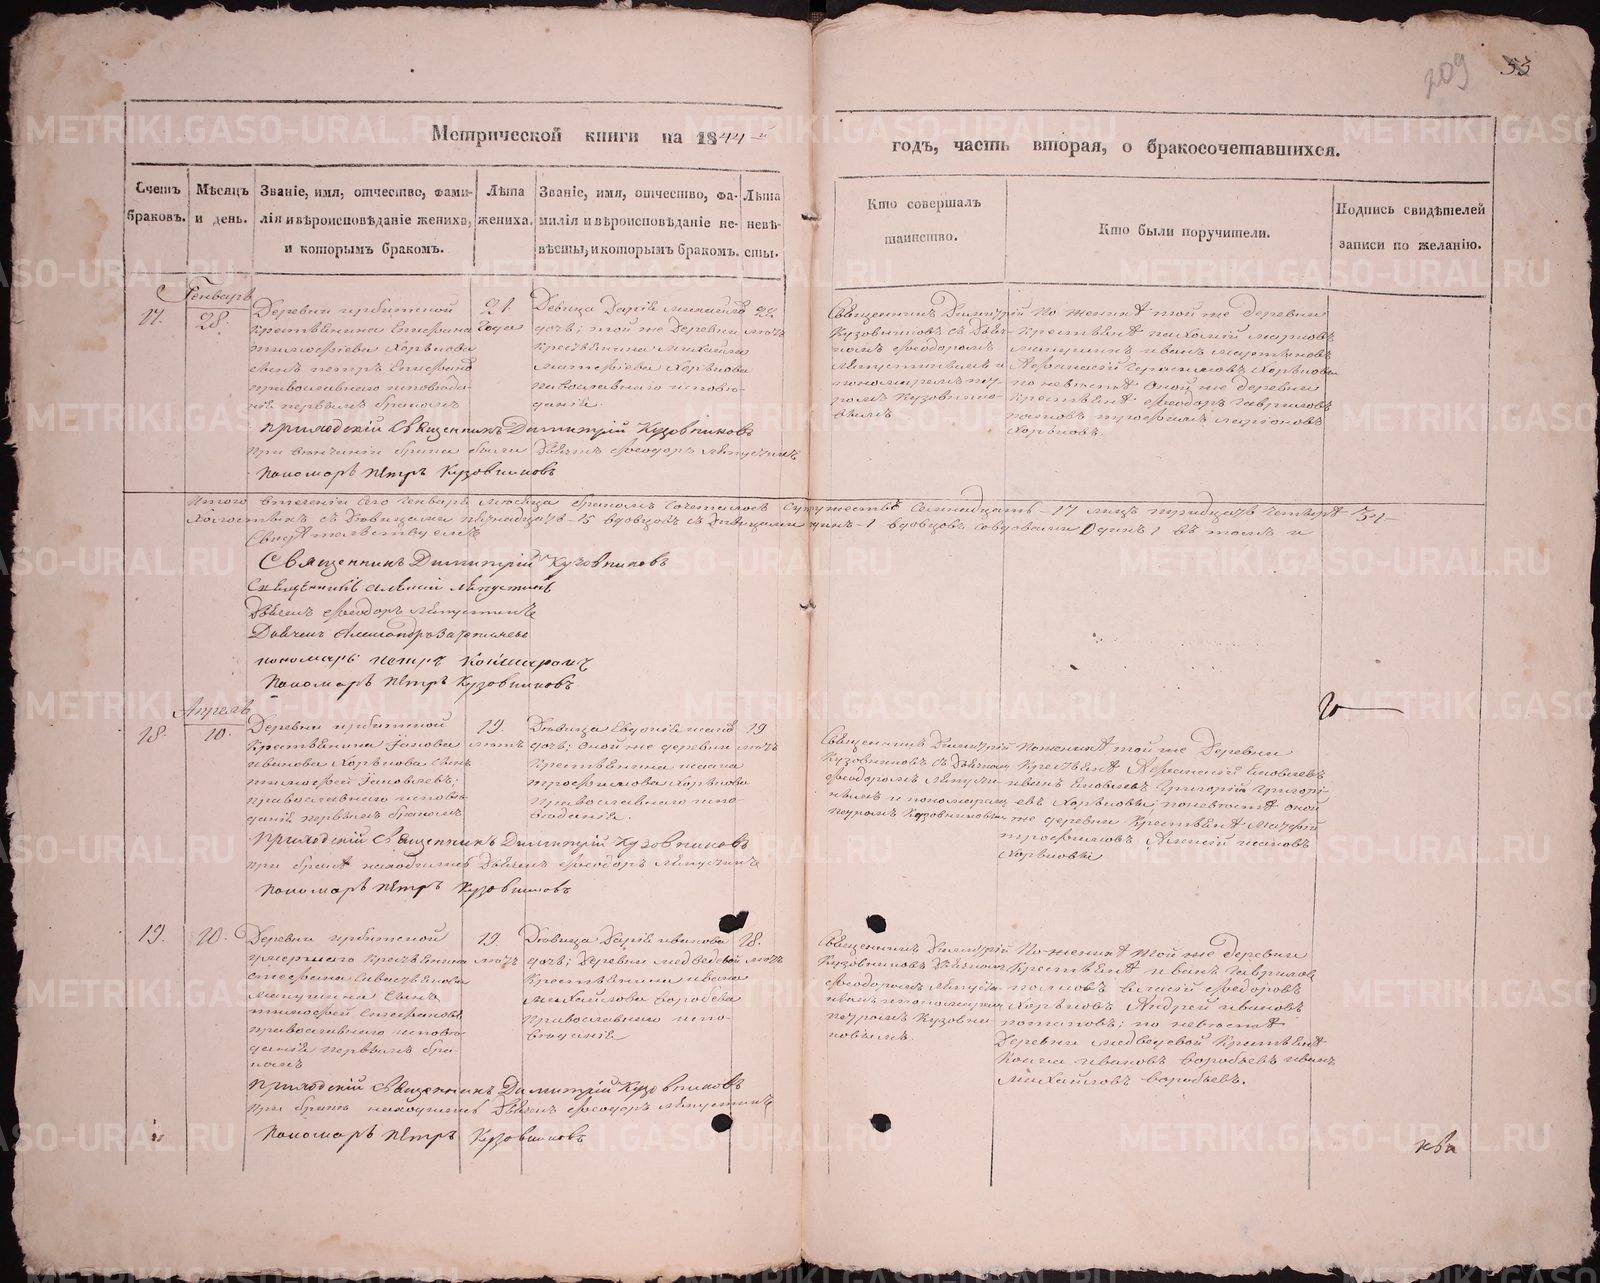 209 53
Метрической книги на 1844-й
годъ, часть вторая, о бракосочетавшихся.
Счетъ браковъ.
Мѣсяцъ и день.
Званіе, имя, отчество, фами-
лія и вѣроисповѣданіе жениха,
и которымъ бракомъ.
Лѣта
жениха.
Званіе, имя, отчество, фа-
милія и вѣроисповѣданіе не-
вѣсты, и которымъ бракомъ.
Лѣта
невѣ-
сты.
Кто совершалъ
таинство.
Кто были поручители.
Подпись свидѣтелей
записи по желанію.
Генварь
17.
28.
Деревни ирбитской
крестьянина Епифана
тимофѣева Хорькова
сынъ петръ Епифановъ
православнаго исповѣда-
нія первымъ бракомъ
21
года
Дѣвица Дарія михайлова
дочь; той же Деревни
крестьянина михайла
Хорькова
православнаго исповѣ-
данія.
22
лѣтъ
Священникъ Димитрій
Кузовниковъ съ Дьяч-
комъ Феодоромъ
Ляпустинымъ и
пономаремъ пет-
ромъ Кузовнико-
вымъ.
По женихѣ той же деревни
крестьяне
иванъ
Афанасій Хорьковы
по невѣстѣ Оной же деревни
крестьяне Феодоръ гавриловъ
поповъ трофимъ
Хорьковъ.
Приходскій Священникъ Димитрій Кузовниковъ
при вѣнчаніи брака были Дьячекъ Феодоръ Ляпустинъ
Пономарь Петръ Кузовниковъ
Итого втеченіи сего Генваря мѣсяца бракомъ сочеталось супружествъ Семнадцать-17 лицъ тридцать четыре-34-
Холостыхъ съ дѣвицами пятнадцать-15 вдовцовъ съ дѣвицами одинъ-1 вдовцовъ со вдовами Одинъ 1 въ томъ и
Свидѣтельствуемъ
Священникъ Димитрій Кузовниковъ
Священникъ Алексій Ляпустинъ
Дьячекъ Феодоръ Ляпустинъ
Дьячекъ Александръ
пономарь петръ
Пономарь Петръ Кузовниковъ
Апрель
18.
10.
Деревни ирбитской
Крестьянина Іакова
иванова Хорькова сынъ
тимофей Іаковлевъ;
православнаго исповѣ-
данія первымъ бракомъ
19.
лѣтъ
Дѣвица Евдокія
дочь; Оной же деревни
Крестьянина
трофимова Хорькова
Православнаго испо-
вѣданія.
19
лѣтъ
Священникъ Димитрій
Кузовниковъ съ Дьячкомъ
Феодоромъ Ляпусти-
нымъ и пономаремъ
петромъ Кузовниковымъ
По женихѣ той же Деревни
Крестьяне Афанасій Іаковлевъ
иванъ Іаковлевъ Григорій Григорь-
евъ Хорьковы; по невѣстѣ оной
же деревни Крестьяне
трофимовъ Алексій
Хорьковы
Приходскій Священникъ Димитрій Кузовниковъ
при бракѣ находились Дьячекъ Феодоръ Ляпустинъ
Пономарь Петръ Кузовниковъ
19.
20.
Деревни ирбитской
умершаго Крестьянина
сынъ
тимофей
православнаго исповѣ-
данія первымъ бра-
комъ
19
лѣтъ
Дѣвица Дарія иванова
дочь; Деревни медведевой
Крестьянина ивана
Михайлова воробьева
Православнаго испо-
вѣданія
18.
лѣтъ
Священникъ Димитрій
Кузовниковъ Дьячкомъ
Феодоромъ Ляпусти-
нымъ и пономаремъ
петромъ Кузовни-
ковымъ.
По женихѣ той же деревни
Крестьяне иванъ гаврилов
поповъ власій Феодоровъ
Хорьковъ Андрей ивановъ
потаповъ; по невѣстѣ
Деревни медведевой Крестьяне
ивановъ воробьевъ иванъ
Михайловъ воробьевъ.
Приходскій Священникъ Димитрій Кузовниковъ
при бракѣ находились Дьячекъ Феодоръ Ляпустинъ
Пономарь Петръ Кузовниковъ
METRIKI.GASO-URAL.RU